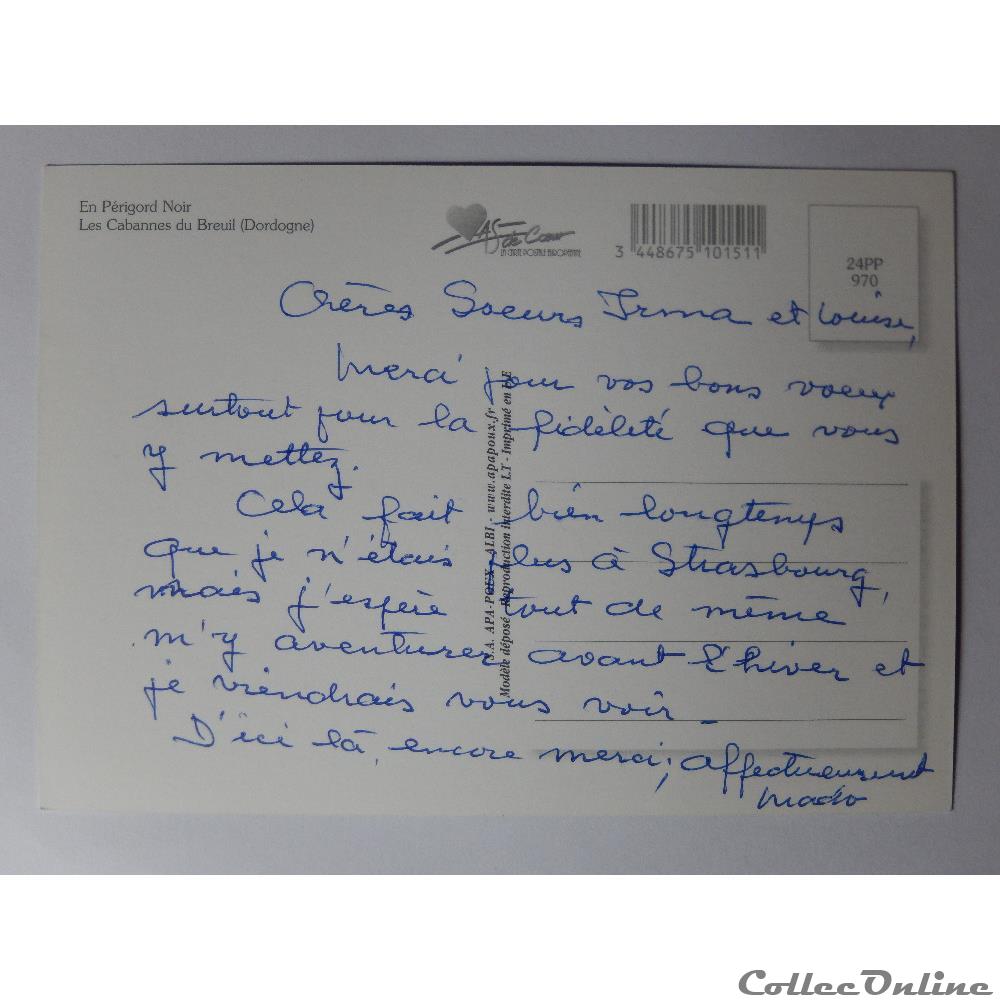 En Périgord Noir
Les Cabannes du Breuil (Dordogne)
AS de Cœur
LA CARTE POSTALE EUROPÉENNE
3 448675 101511
24PP
970
Chères Soeurs Irma et Louise,
Merci pour vos bons voeux
surtout pour la fidèleté que vous
y mettez.
Cela fait bien longtemps
que je n'étais plus à Strasbourg,
mais j'espère tout de même
m'y aventurer avant l'hiver et
je viendrais vous voir _
D'ici là, encore merci; affectueusement
Mado
S.A. APA-POUX - ALBI www.apapoux.fr
Modèle déposé - Reproduction interdite LT - Imprimé en UE
CollecOnline